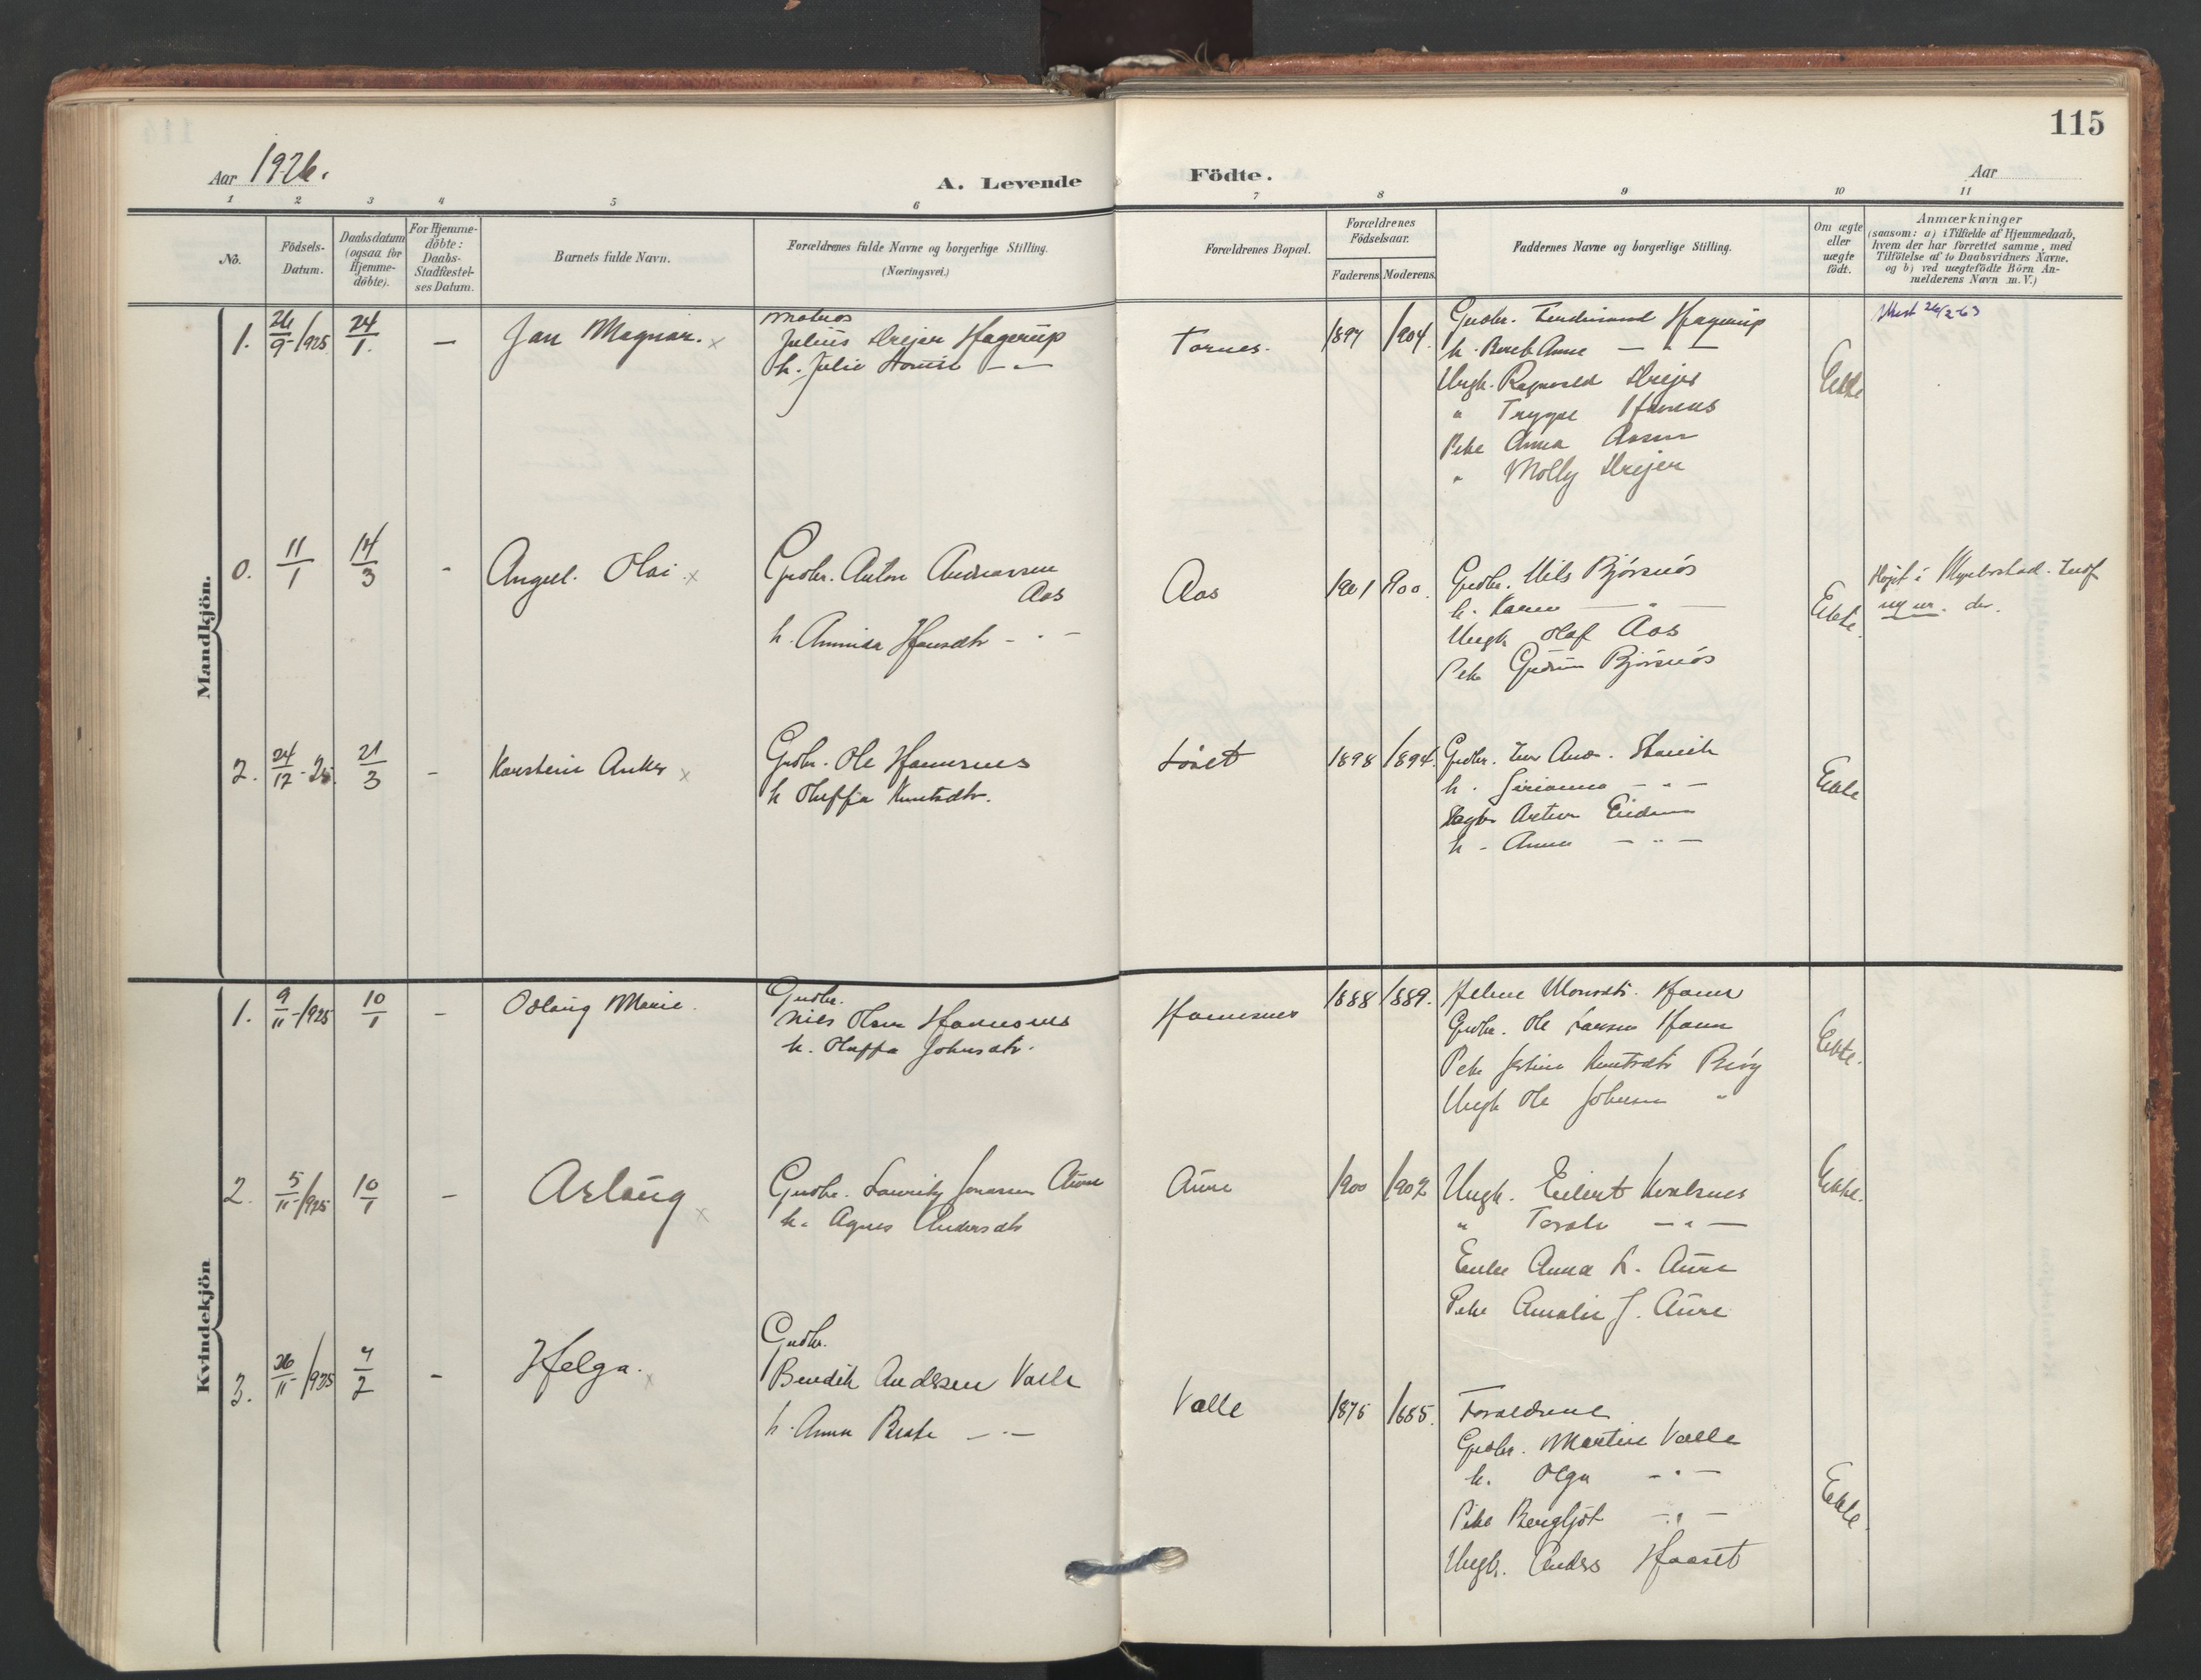 115
Aar 1926.
A. Levende Födte.
Aar
1 2 3 4 5 6 7 8 9 10 11
No.
Födsels-Datum.
Daabsdatum (ogsaa for Hjemme-döbte).
For Hjemme-döbte: Daabs-Stadfæstel-ses Datum.
Barnets fulde Navn.
Forældrenes fulde Navne og borgerlige Stilling.
(Næringsvei.)
Forældrenes Bopæl.
Forældrenes Födselsaar.
Faderens
Moderens.
Faddernes Navne og borgerlige Stilling.
Om ægte eller uægte födt.
Anmærkninger
(saasom: a) i Tilfælde af Hjemmedaab,
hvem der har forrettet samme, med
Tilföielse af to Daabsvidners Navne,
og b) ved uægtefödte Börn An-
melderens Navn m. V.)
Mandkjön.
1. 26/9-1925 24/1. — Jan Magnar.
Julius Dreyer Hagerup
h. Julie
Tornes. 1897 1904.
Gudbr. Ferdinand Hagerup
h. Anne — " —
Ungk. Ragnvald Dreyer
" Trygve
Pike Anna Aasen
" Molly Dreyer
Ekte
26/2-63
0. 11/1 14/3 - Olai
Grdbr. Anton Andreassen
Aas
h. Hansdtr - " -
Aas 1901 1900.
Grdbr. Nils Bjørsnøs
h. Karen — " —
Ungk Olaf Aas
Pike Gudrun Bjørsnøs
Ekte.
2. 24/12-25. 21/3 - Karstein Anker
Grdbr. Ole Hamsnes
h Oluffa Knutsdtr.
1898 1894.
Grdbr. And.
h. - " -
Artur Eidem
h - Anna - " -
Ekte
Kvindekjön
1. 9/11-1925 10/1 - Oslaug Marie.
Grdbr.
Nils Olsen Hamsnes
h. Oluffa Johnsdtr.
Hamsnes 1888 1889.
Grdbr. Ole Larsen
Pike Knutsdtr
Ungk Ole Johnsen "
Ekte.
2. 5/11-1925 10/1 - Aslaug
Grdbr. Lauritz Jonassen Aure
h. Agnes Andersdtr
Aure 1900 1902
Ungk. Eilert Kvalsnes
" — " —
Enke Anna L. Aure
Pike Amalie J. Aure
Ekte.
3. 26/11-1925 7/2 - Helga.
Grdbr.
Bendik Andersen Valle
h. Anna Beate — " —
Valle 1875 1885.
Forældrene
Grdbr. Martin Valle
h. Olga - " -
Pike Bergljot - " -
Ungk. Anders
Ekte.